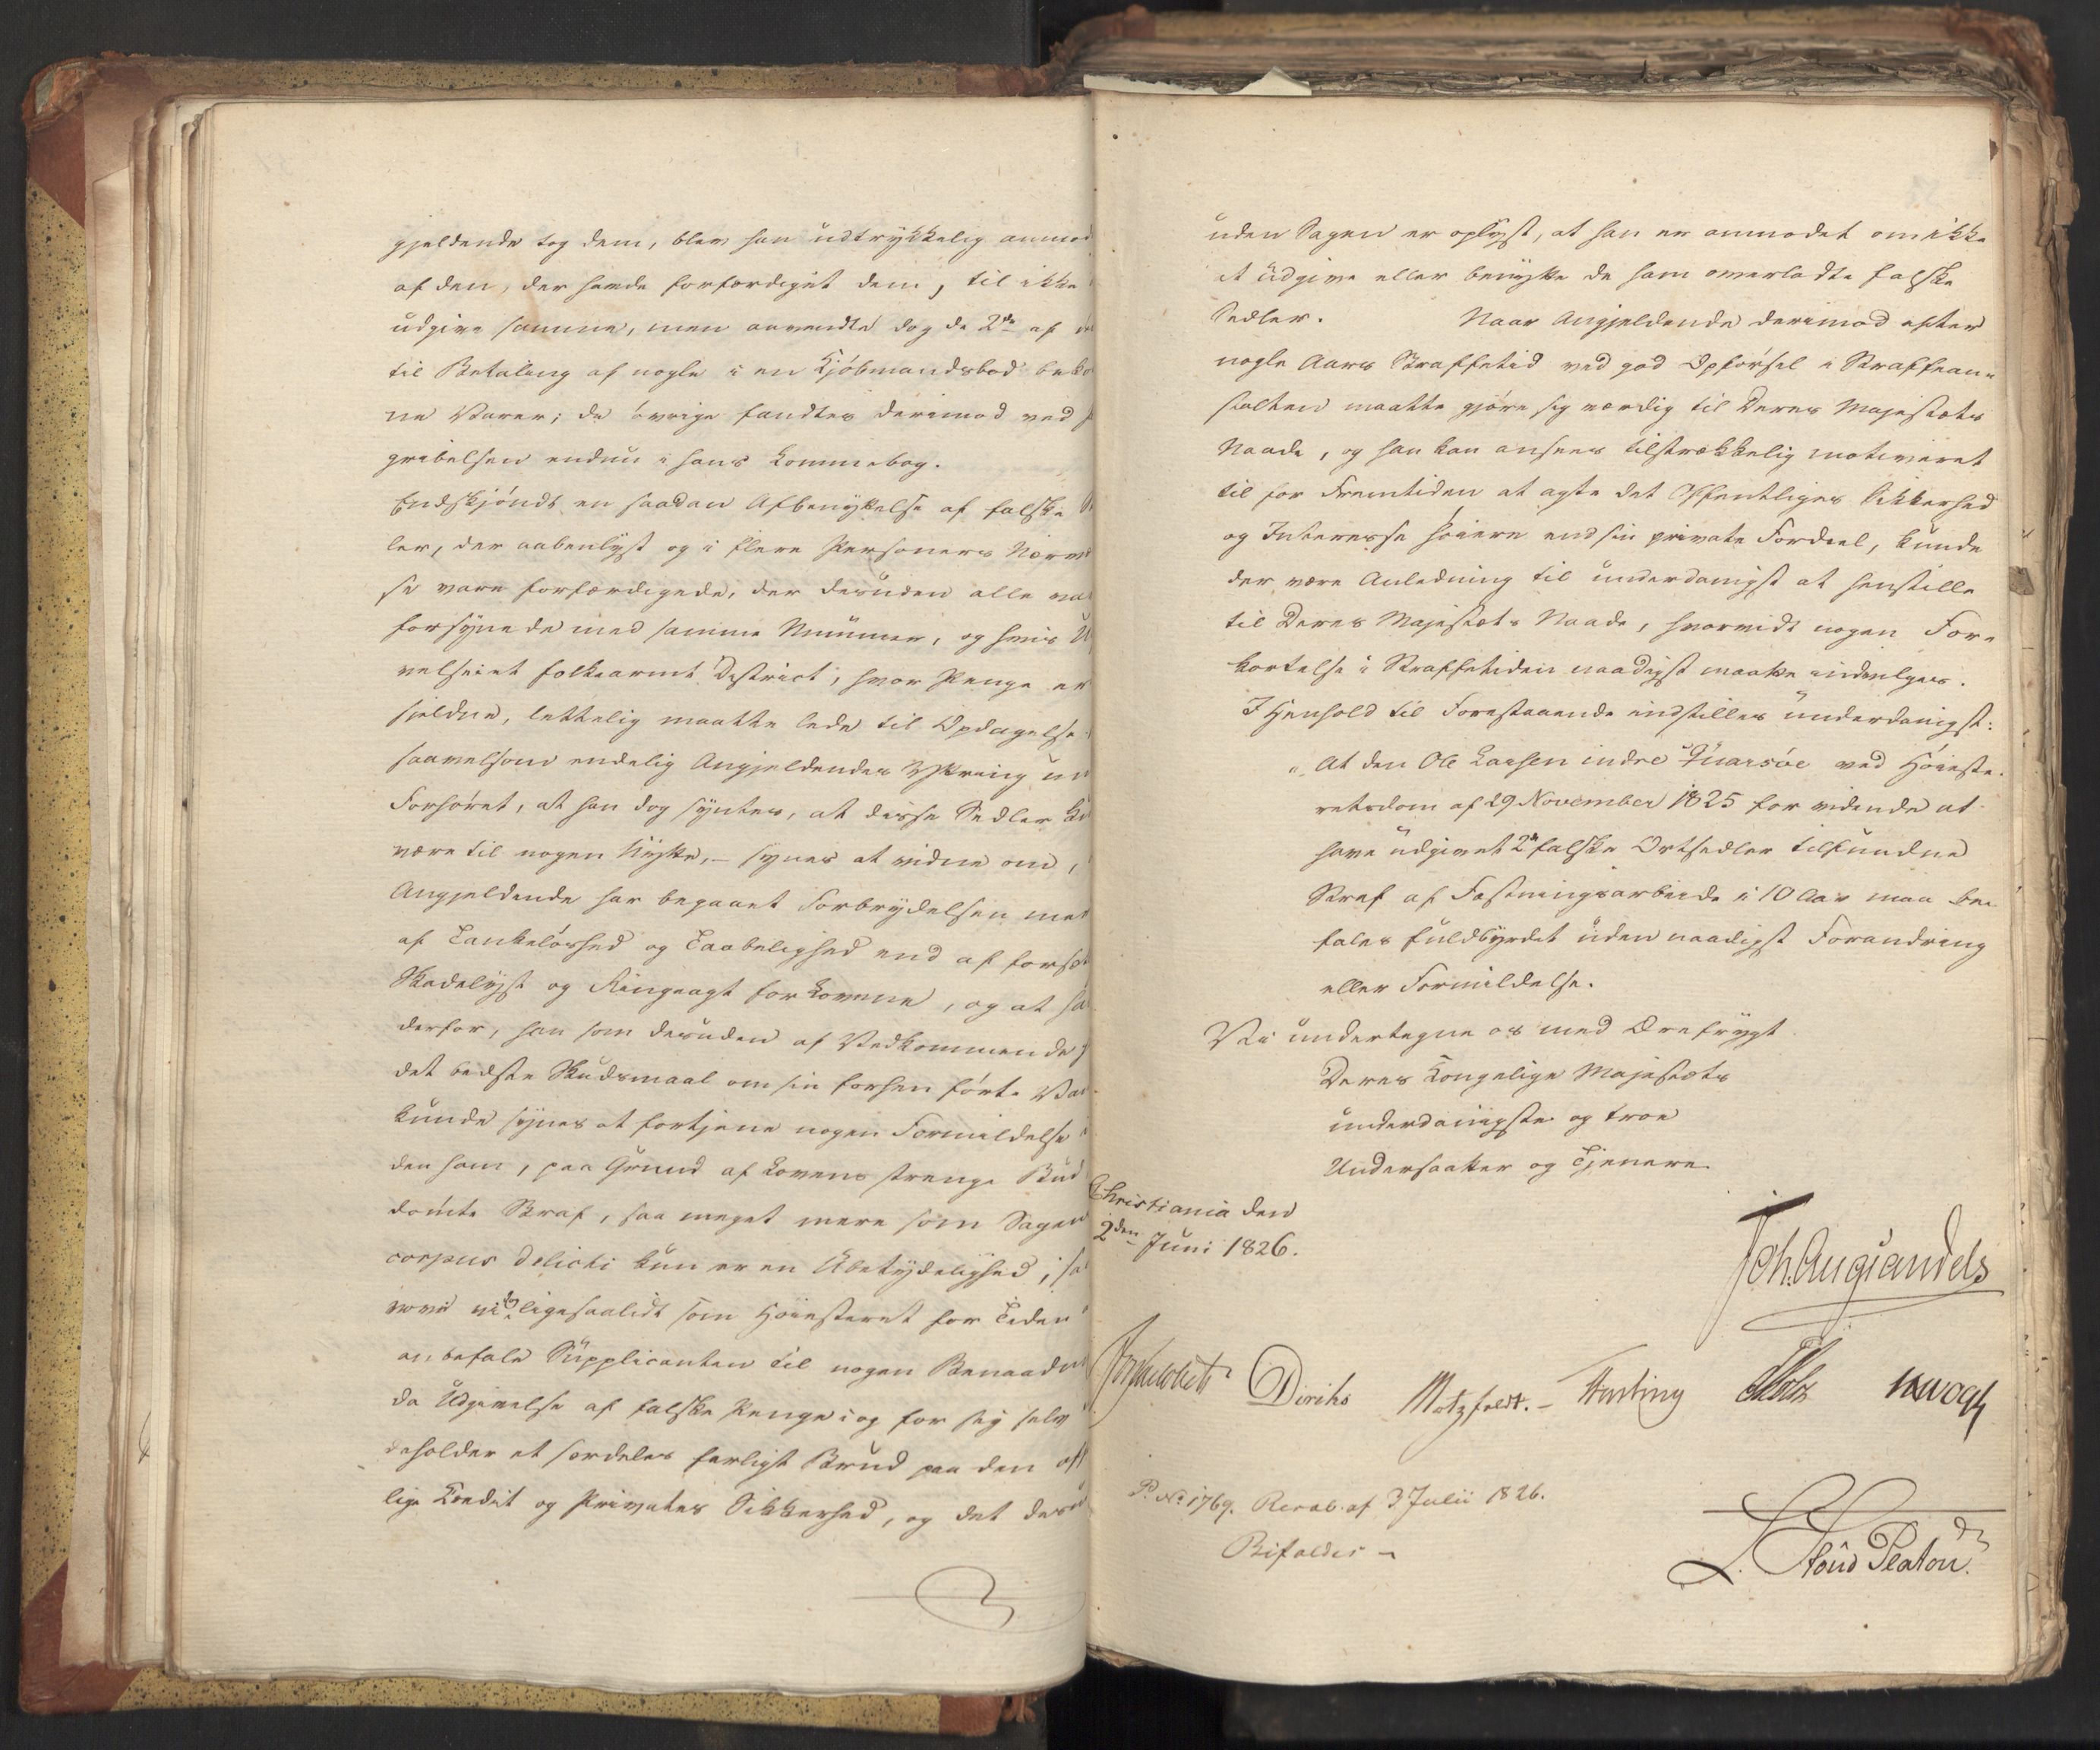 gjeldende tog dem, blev han udtrykkelig anmod
af den, der havde forfærdiget dem, til ikke
udgive samme, men anvendte dog de 2de af de
til Betaling af nogle i en Kjöbmandsbod beko
ne Varer; de övrige fandtes derimod ved
gribelsen endnu i hans Lommebog.
Endskjöndt en saadan Afbenyttelse af falske
ler, der aabenlyst og i flere Personers Nærv
se vare forfærdigede, der desuden alle va
forsynede med samme Nummer, og hvis U
velse i et folkearmt District, hvor Penge er
sjeldne, lettelig maatte lede til Opdagelse
saavelsom endelig Angjeldendes Yttring un
Forhöret, at han dog syntes, at disse Sedler ku
være til nogen Nytte, – synes at vidne om,
Angjeldende har begaaet Forbrydelsen mer
af Tankelöshed og Taabelighed end af forsæt
Skadelyst og Ringeagt for Lovene, og at ha
derfor, han som desuden af Vedkommende
det bedste Skudsmaal om sin forhen förte Van
kunde synes at fortjene nogen Formildelse i
den ham, paa Grund af Lovens strenge Bud
dömte Straf, saa meget mere som Sagens
corpus delicti kun er en Ubetydelighed; saa
vove vi dog ligesaalidt som Höiesteret for Tiden
anbefale Supplicanten til nogen Benaadn
da Udgivelse af falske Penge i og for sig selv
deholder et særdeles farligt Brud paa den off
lige Credit og Privates Sikkerhed, og det desu
uden Sagen er oplyst, at han er anmodet om ikke
at udgive eller benytte de ham overladte falske
Sedler. Naar Angjeldende derimod efter
nogle Aars Straffetid ved god Opförsel i Straffean-
stalten maatte gjöre sig værdig til Deres Majestæts
Naade, og han kan ansees tilstrækkelig motiveret
til for Fremtiden at agte det Offentliges Sikkerhed
og Interesse höiere end sin private Fordeel, kunde
der være Anledning til underdanigst at henstille
til Deres Majestæts Naade, hvorvidt nogen For-
kortelse i Straffetiden naadigst maatte indvilges.
I Henhold til Forestaaende indstilles underdanigst:
"At den Ole Larsen indre Quarsöe ved Höieste-
retsdom af 29 November 1825 for vidende at
have udgivet 2de falske Ortsedler tilfundne
Straf af Fæstningsarbeide i 10 Aar maa be-
fales fuldbyrdet uden naadigst Forandring
eller Formildelse.
Vi undertegne os med Ærefrygt
Deres Kongelige Majestæts
underdanigste og troe
Undersaatter og Tjenere
Christiania den
2den Juni 1826.
Joh. Aug: Sandels
Diriks Motzfeldt. – Fasting Holst
P. No 1769. Resol. af 3 Julii 1826.
Bifaldes –
L. Stoud Platou.